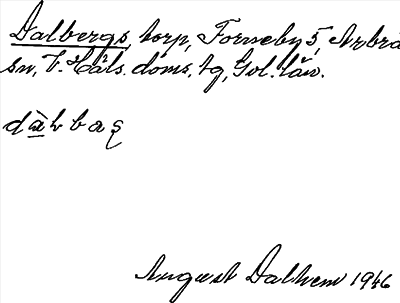 Dalbergs, torp, Forneby 5, Arbrå
sn, V. Häls. doms. tg, Gvl. län.
dàḷbaş
August Dalhem 1946